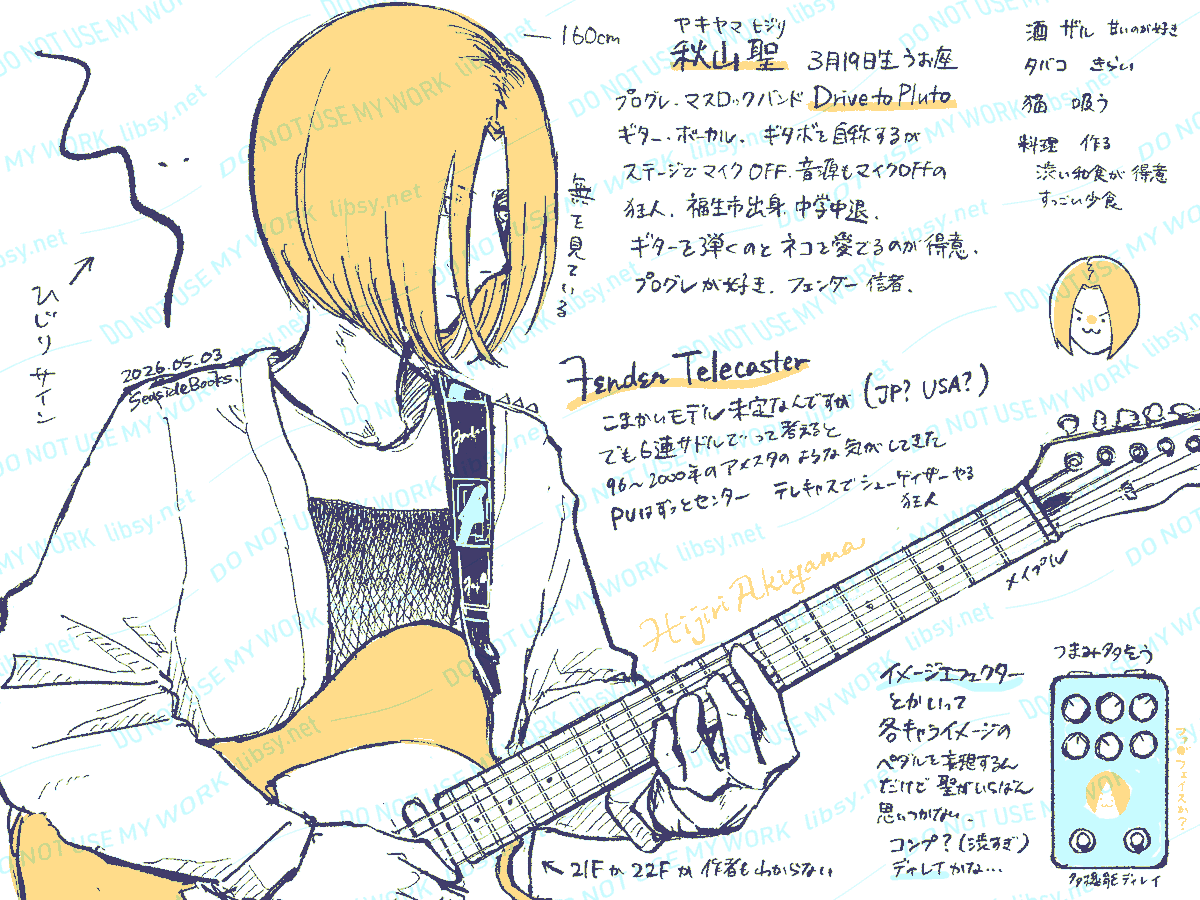 160cm
アキヤマ ヒジリ
秋山 聖 3月19日生 うお座
プログレ・マスロックバンド Drive to Pluto
ギター・ボーカル。ギタボを自称するが
ステージでマイクOFF、音源もマイクOFFの
狂人。福生市出身 中学中退。
ギターを弾くのと ネコを愛でるのが得意。
プログレが好き。フェンダー信者。
酒 ザル 甘いのが好き
タバコ きらい
猫 吸う
料理 作る
渋い和食が得意
すっごい少食
無を見ている
ひじりサイン
2026.05.03
SeasideBooks.
Fender Telecaster
(JP? USA?)
こまかいモデル未定なんですが
でも6連サドルで…って考えると
96〜2000年のアメスタのような気がしてきた
PUはずっとセンター テレキャスでシューゲイザーやる
狂人
Hijiri Akiyama
メイプル
イメージエフェクター
とかいって
各キャライメージの
ペダルを妄想するん
だけど 聖がいちばん
思いつかない。
コンプ?(渋すぎ)
ディレイかな…
つまみ多そう
多機能ディレイ
←21Fか22Fか作者もわからない
DO NOT USE MY WORK libsy.net